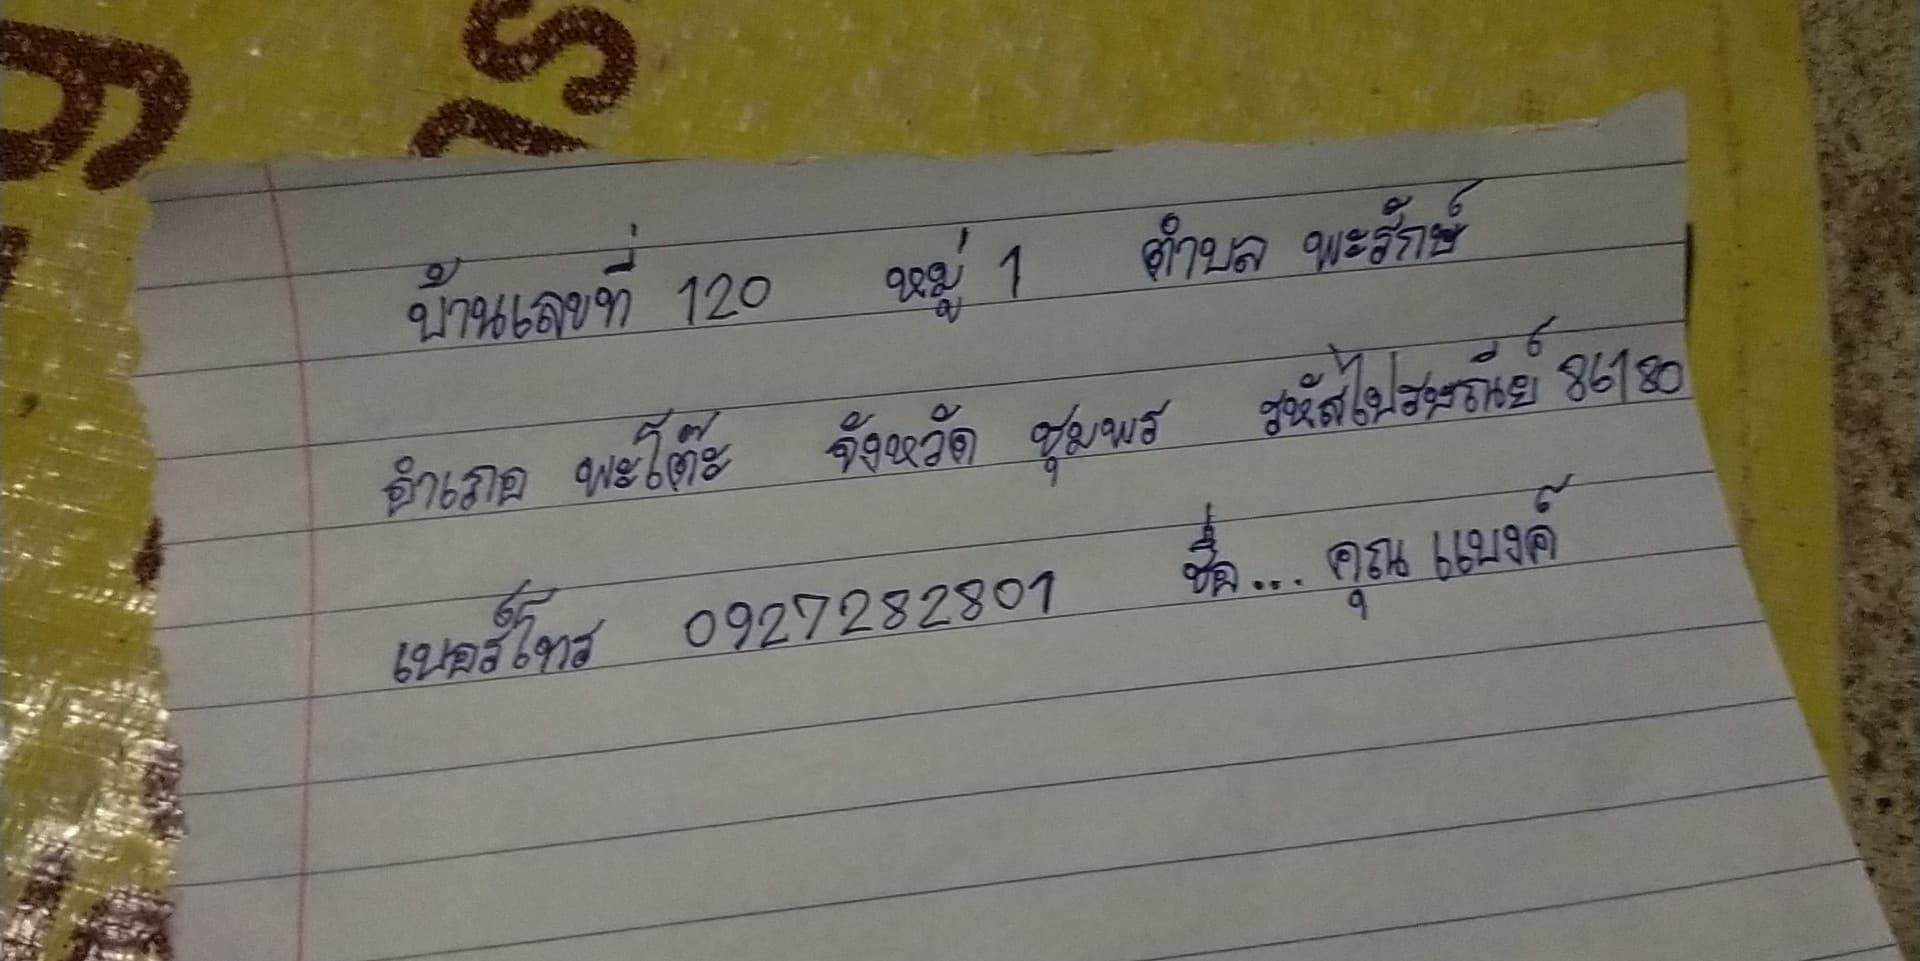 บ้านเลขที่ 120 หมู่ 1 ตำบล พะรักษ์
อำเภอ พะโต๊ะ จังหวัด ชุมพร รหัสไปรษณีย์ 86180
เบอร์โทร 0927282801 ชื่อ... คุณ แบงค์